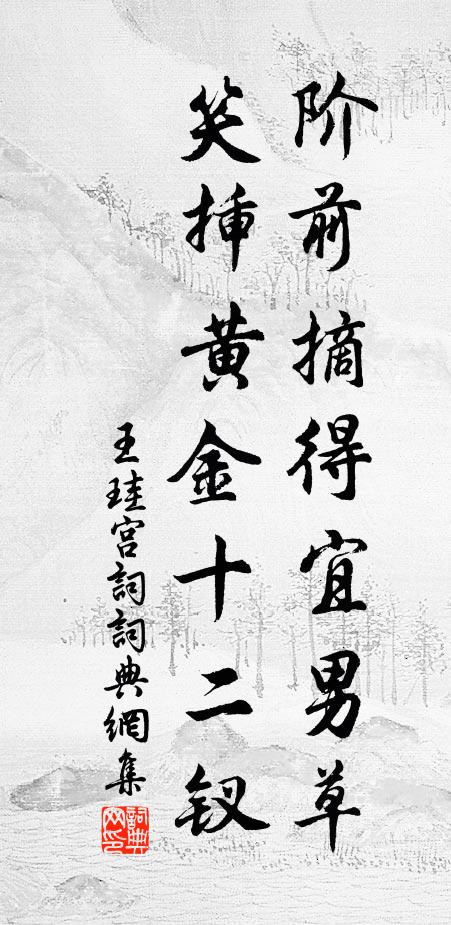 阶前摘得宜男草
笑插黄金十二钗
王珪宫詞詞典網集
詞典网印